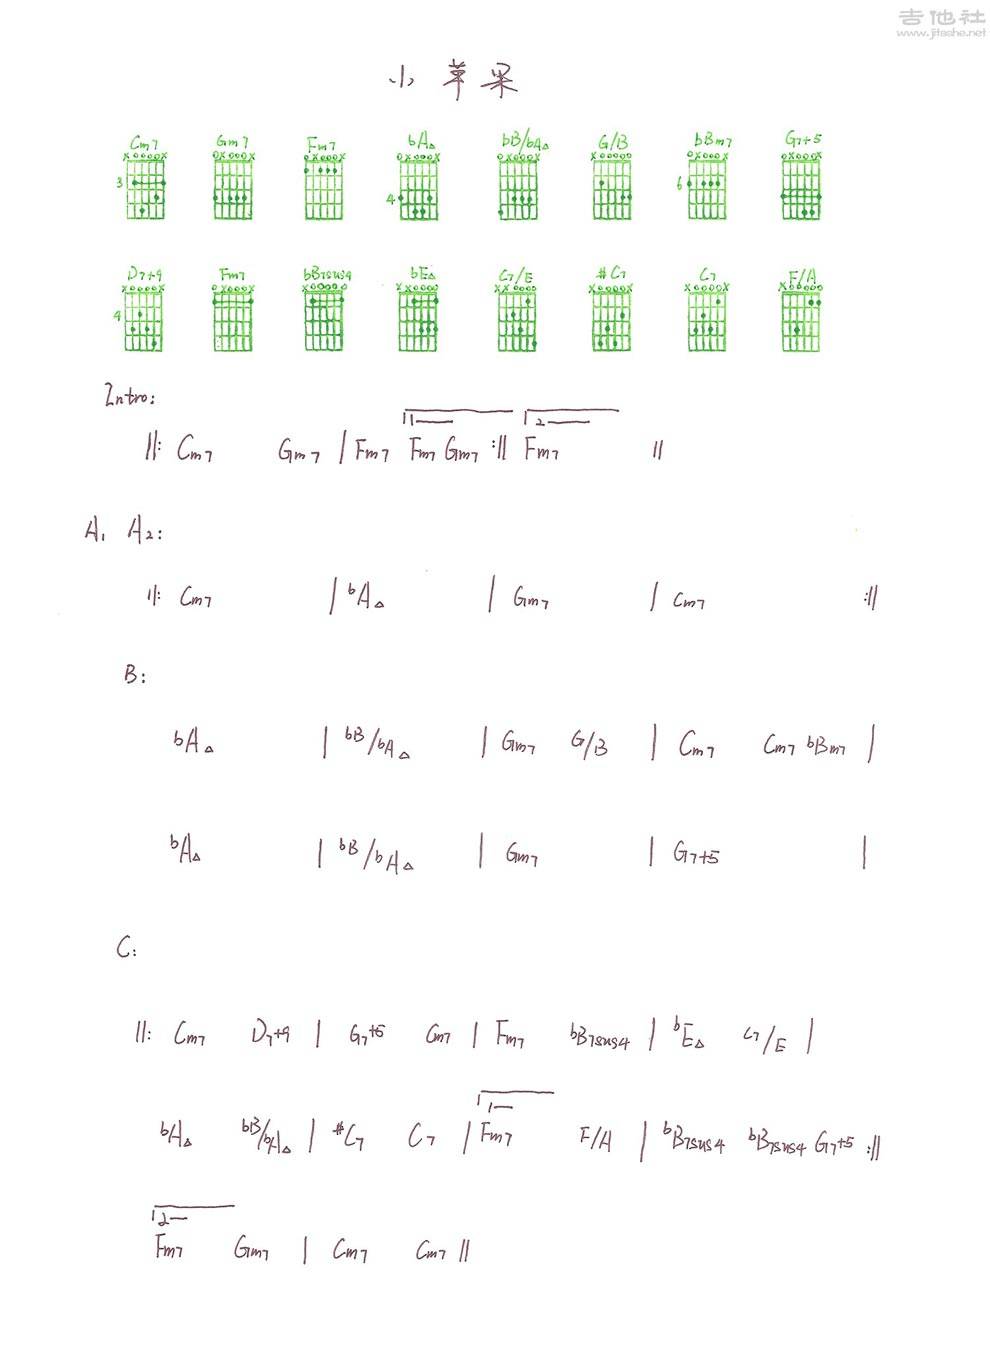 吉他社
www.jitashe.net
小苹果
Cm7 Gm7 Fm7 bA△ bB/bA△ G/B bBm7 G7+5
3 4 6
D7+9 Fm7 bB7sus4 bE△ C7/E #C7 C7 F/A
4
Intro:
1 2
||: Cm7 Gm7 | Fm7 Fm7 Gm7 :|| Fm7 ||
A1 A2:
||: Cm7 | bA△ | Gm7 | Cm7 :||
B:
bA△ | bB/bA△ | Gm7 G/B | Cm7 Cm7 bBm7 |
bA△ | bB/bA△ | Gm7 | G7+5 |
C:
||: Cm7 D7+9 | G7+5 Cm7 | Fm7 bB7sus4 | bE△ C7/E |
1
bA△ bB/bA△ | #C7 C7 | Fm7 F/A | bB7sus4 bB7sus4 G7+5 :||
2
Fm7 Gm7 | Cm7 Cm7 ||